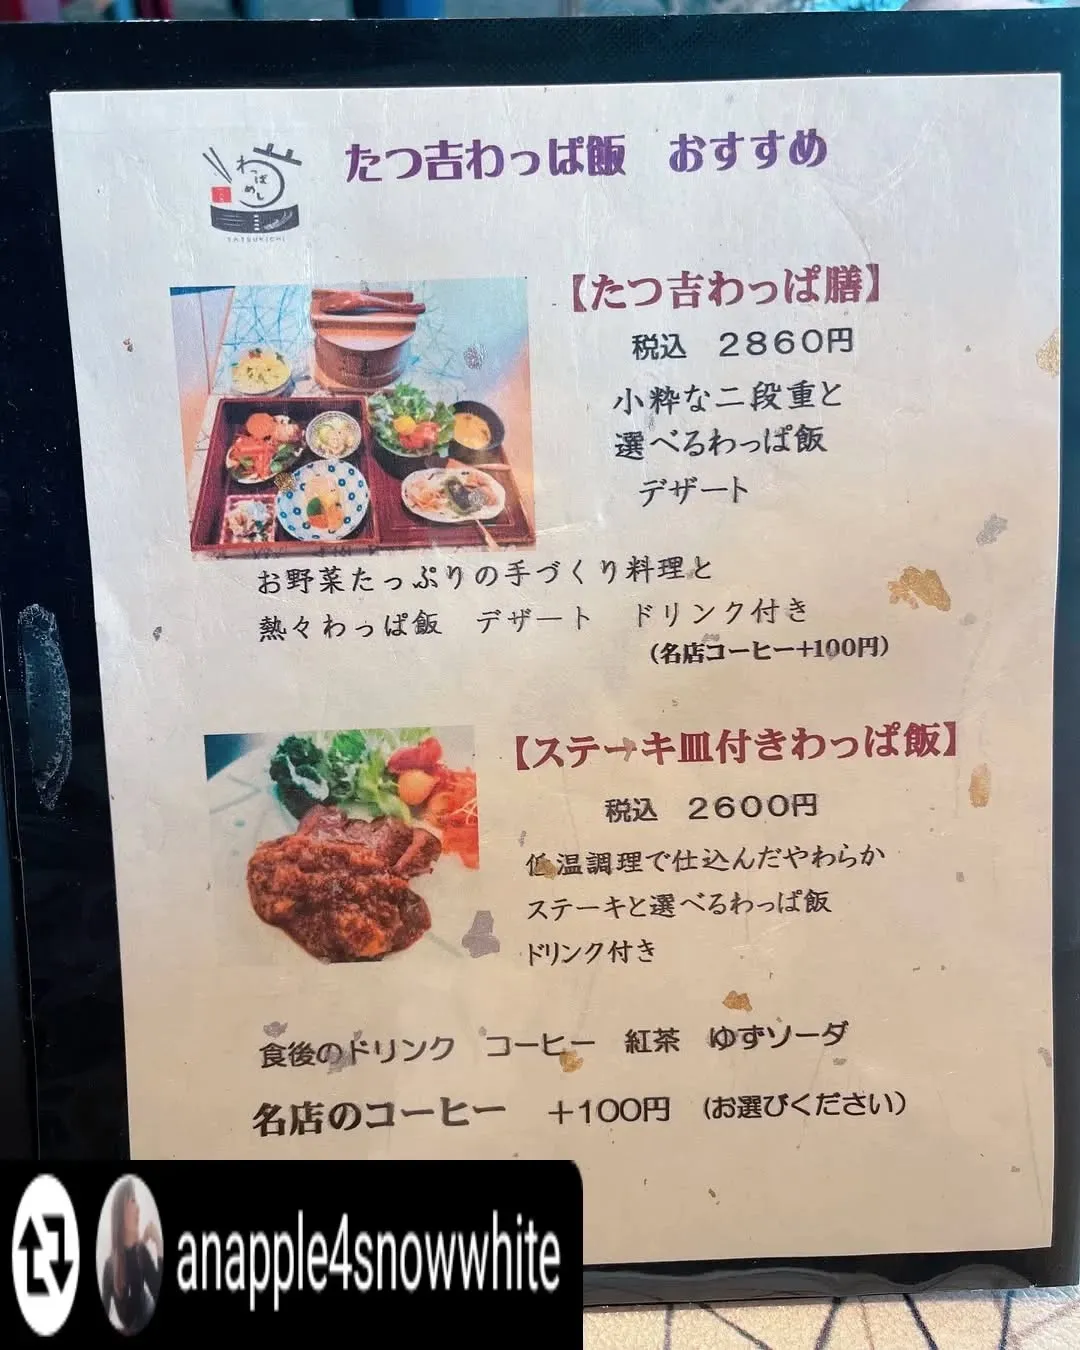 わっぱめし
TATSUKICHI
たつ吉わっぱ飯　おすすめ
【たつ吉わっぱ膳】
税込　2860円
小粋な二段重と
選べるわっぱ飯
デザート
お野菜たっぷりの手づくり料理と
熱々わっぱ飯　デザート　ドリンク付き
（名店コーヒー+100円）
【ステーキ皿付きわっぱ飯】
税込　2600円
低温調理で仕込んだやわらか
ステーキと選べるわっぱ飯
ドリンク付き
食後のドリンク　コーヒー　紅茶　ゆずソーダ
名店のコーヒー　+100円　（お選びください）
anapple4snowwhite